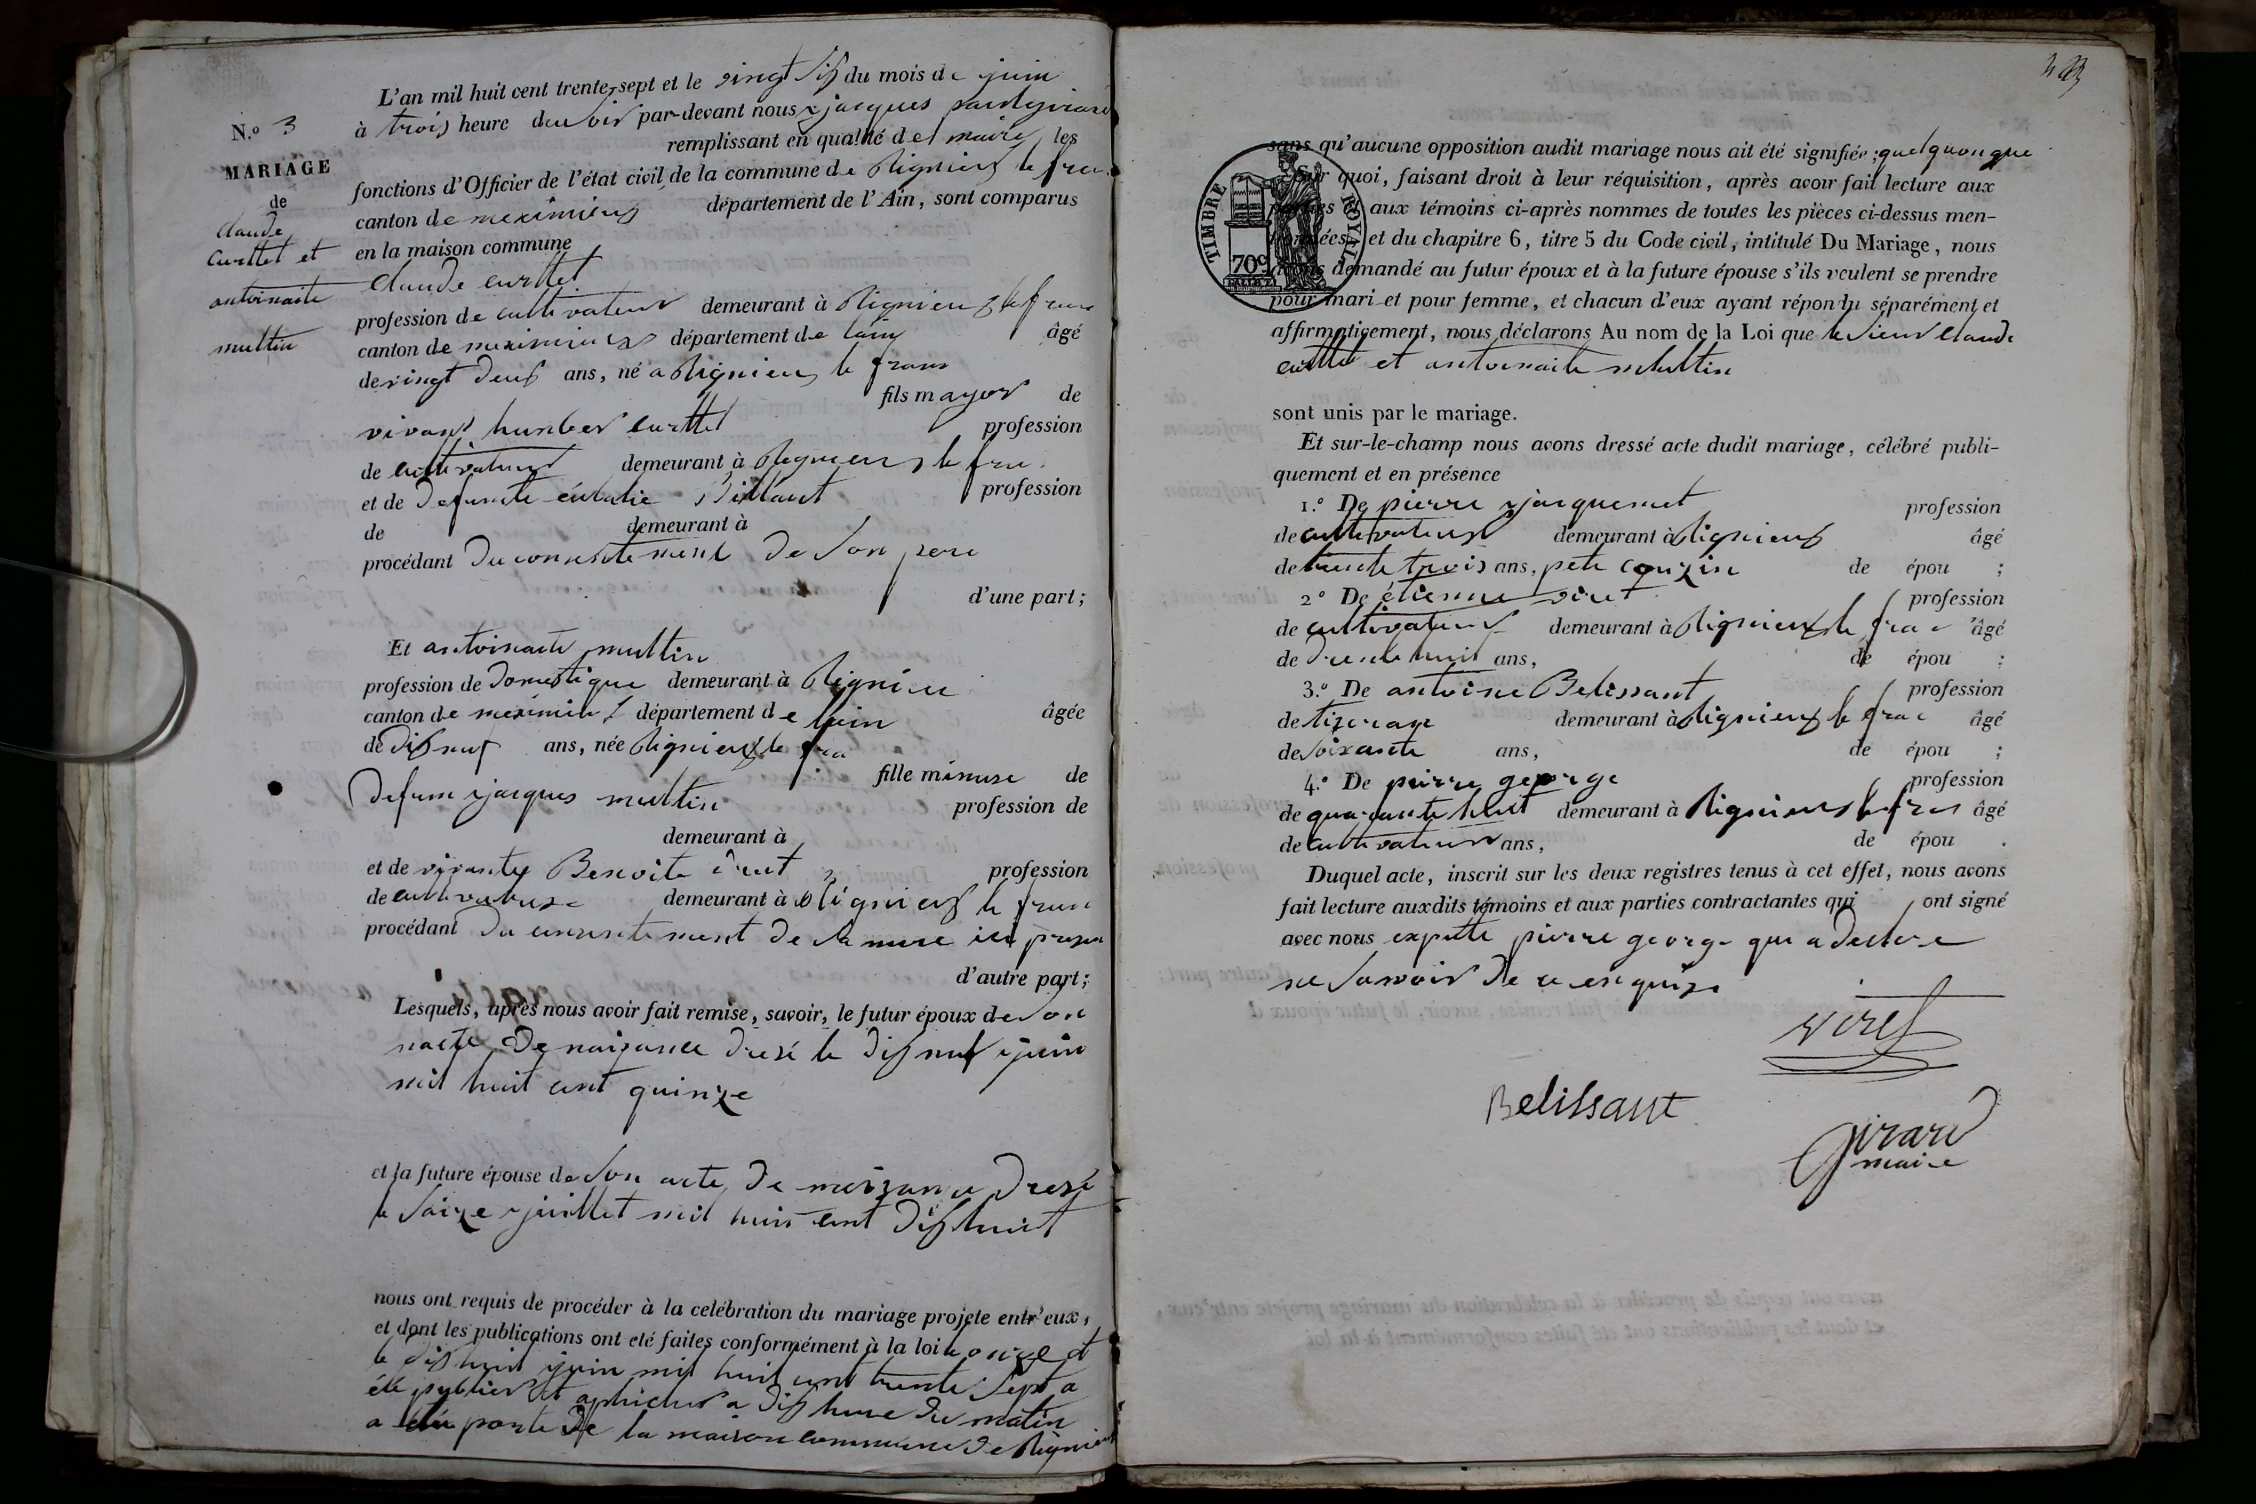 L'an mil huit cent trente-sept et le vingt sis du mois de juin
N.º 3
à trois heure du soir par-devant nous jacques
remplissant en qualité de maire les
MARIAGE
de
claude
curttet et
antoinaite
multin
fonctions d'Officier de l'état civil de la commune de Rignieux le fran
canton de meximieux département de l'Ain, sont comparus
en la maison commune
claude curttet
profession de cultivateur demeurant à Rignieux le franc
canton de meximieux département de lain âgé
de vingt deux ans, né a Rignieux le franc
fils mayor de
vivant humber curttet profession
de cultivateur demeurant à Rignieux le fran
et de defunte eulalie Billaut profession
de demeurant à
procédant du consentement de son pere
d'une part;
Et antoinaite multin
profession de domestique demeurant à Rignieu
canton de meximieux département de lain âgée
de dis neuf ans, née Rignieux le fra
fille minure de
defun jacques multin profession de
demeurant à
et de vivante Benoite profession
de cultivatrise demeurant à Rignieux le franc
procédant du consentement de sa mere ici presen
d'autre part;
Lesquels, après nous avoir fait remise, savoir, le futur époux de son
nacte de naisance dresé le dis neuf juin
mil huit cent quinze
et la future épouse de son acte de naissance dresé
le saize juillet mil huis cent dis huit
nous ont requis de procéder à la celébration du mariage projete entr'eux,
et dont les publications ont eté faites conformément à la loi le onze et
le dis huit juin mil huit cent trente sept a
été publier et aphicher a dis heure du matin
a la porte de la maison commune de Rignieu
sans qu'aucune opposition audit mariage nous ait été signifiée; quelquonque
Sur quoi, faisant droit à leur réquisition, après avoir fait lecture aux
parties et aux témoins ci-après nommes de toutes les pièces ci-dessus men-
tionnées, et du chapitre 6, titre 5 du Code civil, intitulé Du Mariage, nous
avons demandé au futur époux et à la future épouse s'ils veulent se prendre
pour mari et pour femme, et chacun d'eux ayant répondu séparément et
affirmativement, nous déclarons Au nom de la Loi que le sieur claude
curttet et antoinaite multin
TIMBRE ROYAL
70c
sont unis par le mariage.
Et sur-le-champ nous avons dressé acte dudit mariage, célébré publi-
quement et en présence
1.º De pierre jacquemet profession
de cultivateur demeurant à Rignieux âgé
de trente trois ans, petit couzin de épou ;
2º De étienne viret profession
de cultivateur demeurant à Rignieux le fran âgé
de trente huit ans, de épou ;
3.º De antoine Belissant profession
de tiserage demeurant à Rignieux le fran âgé
de soixante ans, de épou ;
4.º De pierre george profession
de quarante huit demeurant à Rignieux le fran âgé
de cultivateur ans, de épou .
Duquel acte, inscrit sur les deux registres tenus à cet effet, nous avons
fait lecture auxdits témoins et aux parties contractantes qui ont signé
avec nous expette pierre george qui a declare
ne savoir de ce enquize
viret
Belissant
Girard
maire